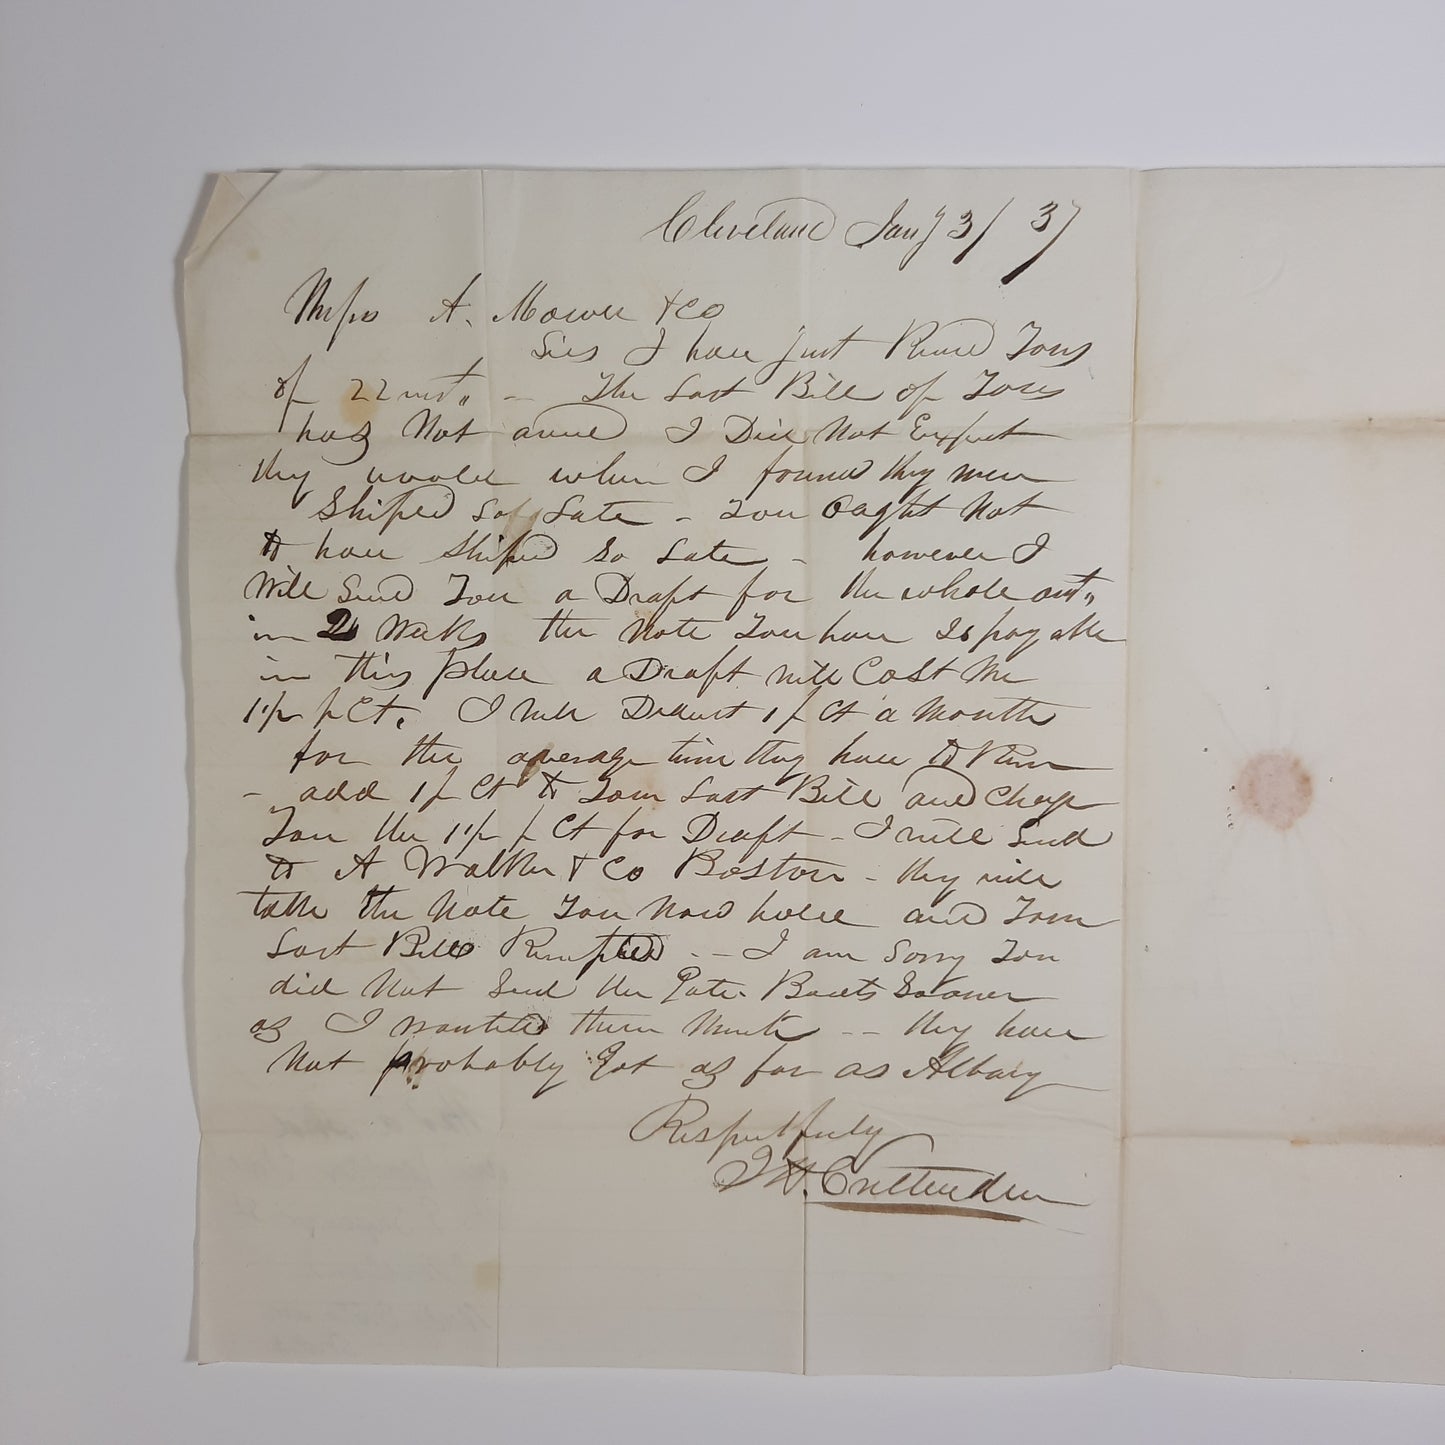 Cleveland Jany 3/ 37
Messrs A. Mower & Co
Sirs I have just Recd Yours
of 22 inst,, - The Last Bill of Yours
has Not arived I Did Not Expect
they would when I found they were
Shiped So Late - You Ought Not
to have Shiped So Late - however I
Will Send You a Draft for the whole amt,,
in 2 Weeks the Note You have Is payable
in this place a Draft will Cost Me
1 1/2 p Ct. I will Deduct 1 p Ct a Month
for the average time they have to Run
- add 1 p Ct to Your Last Bill and Charge
You the 1 1/2 p Ct for Draft - I will Send
to A Walker & Co Boston - they will
take the Note You Now hold and Your
Last Bill Receipted - - I am Sorry You
did Not Send the Boots Sooner
as I wanted them Much - - they have
Not probably Got as far as Albany
Respectfully
J H. Crittenden